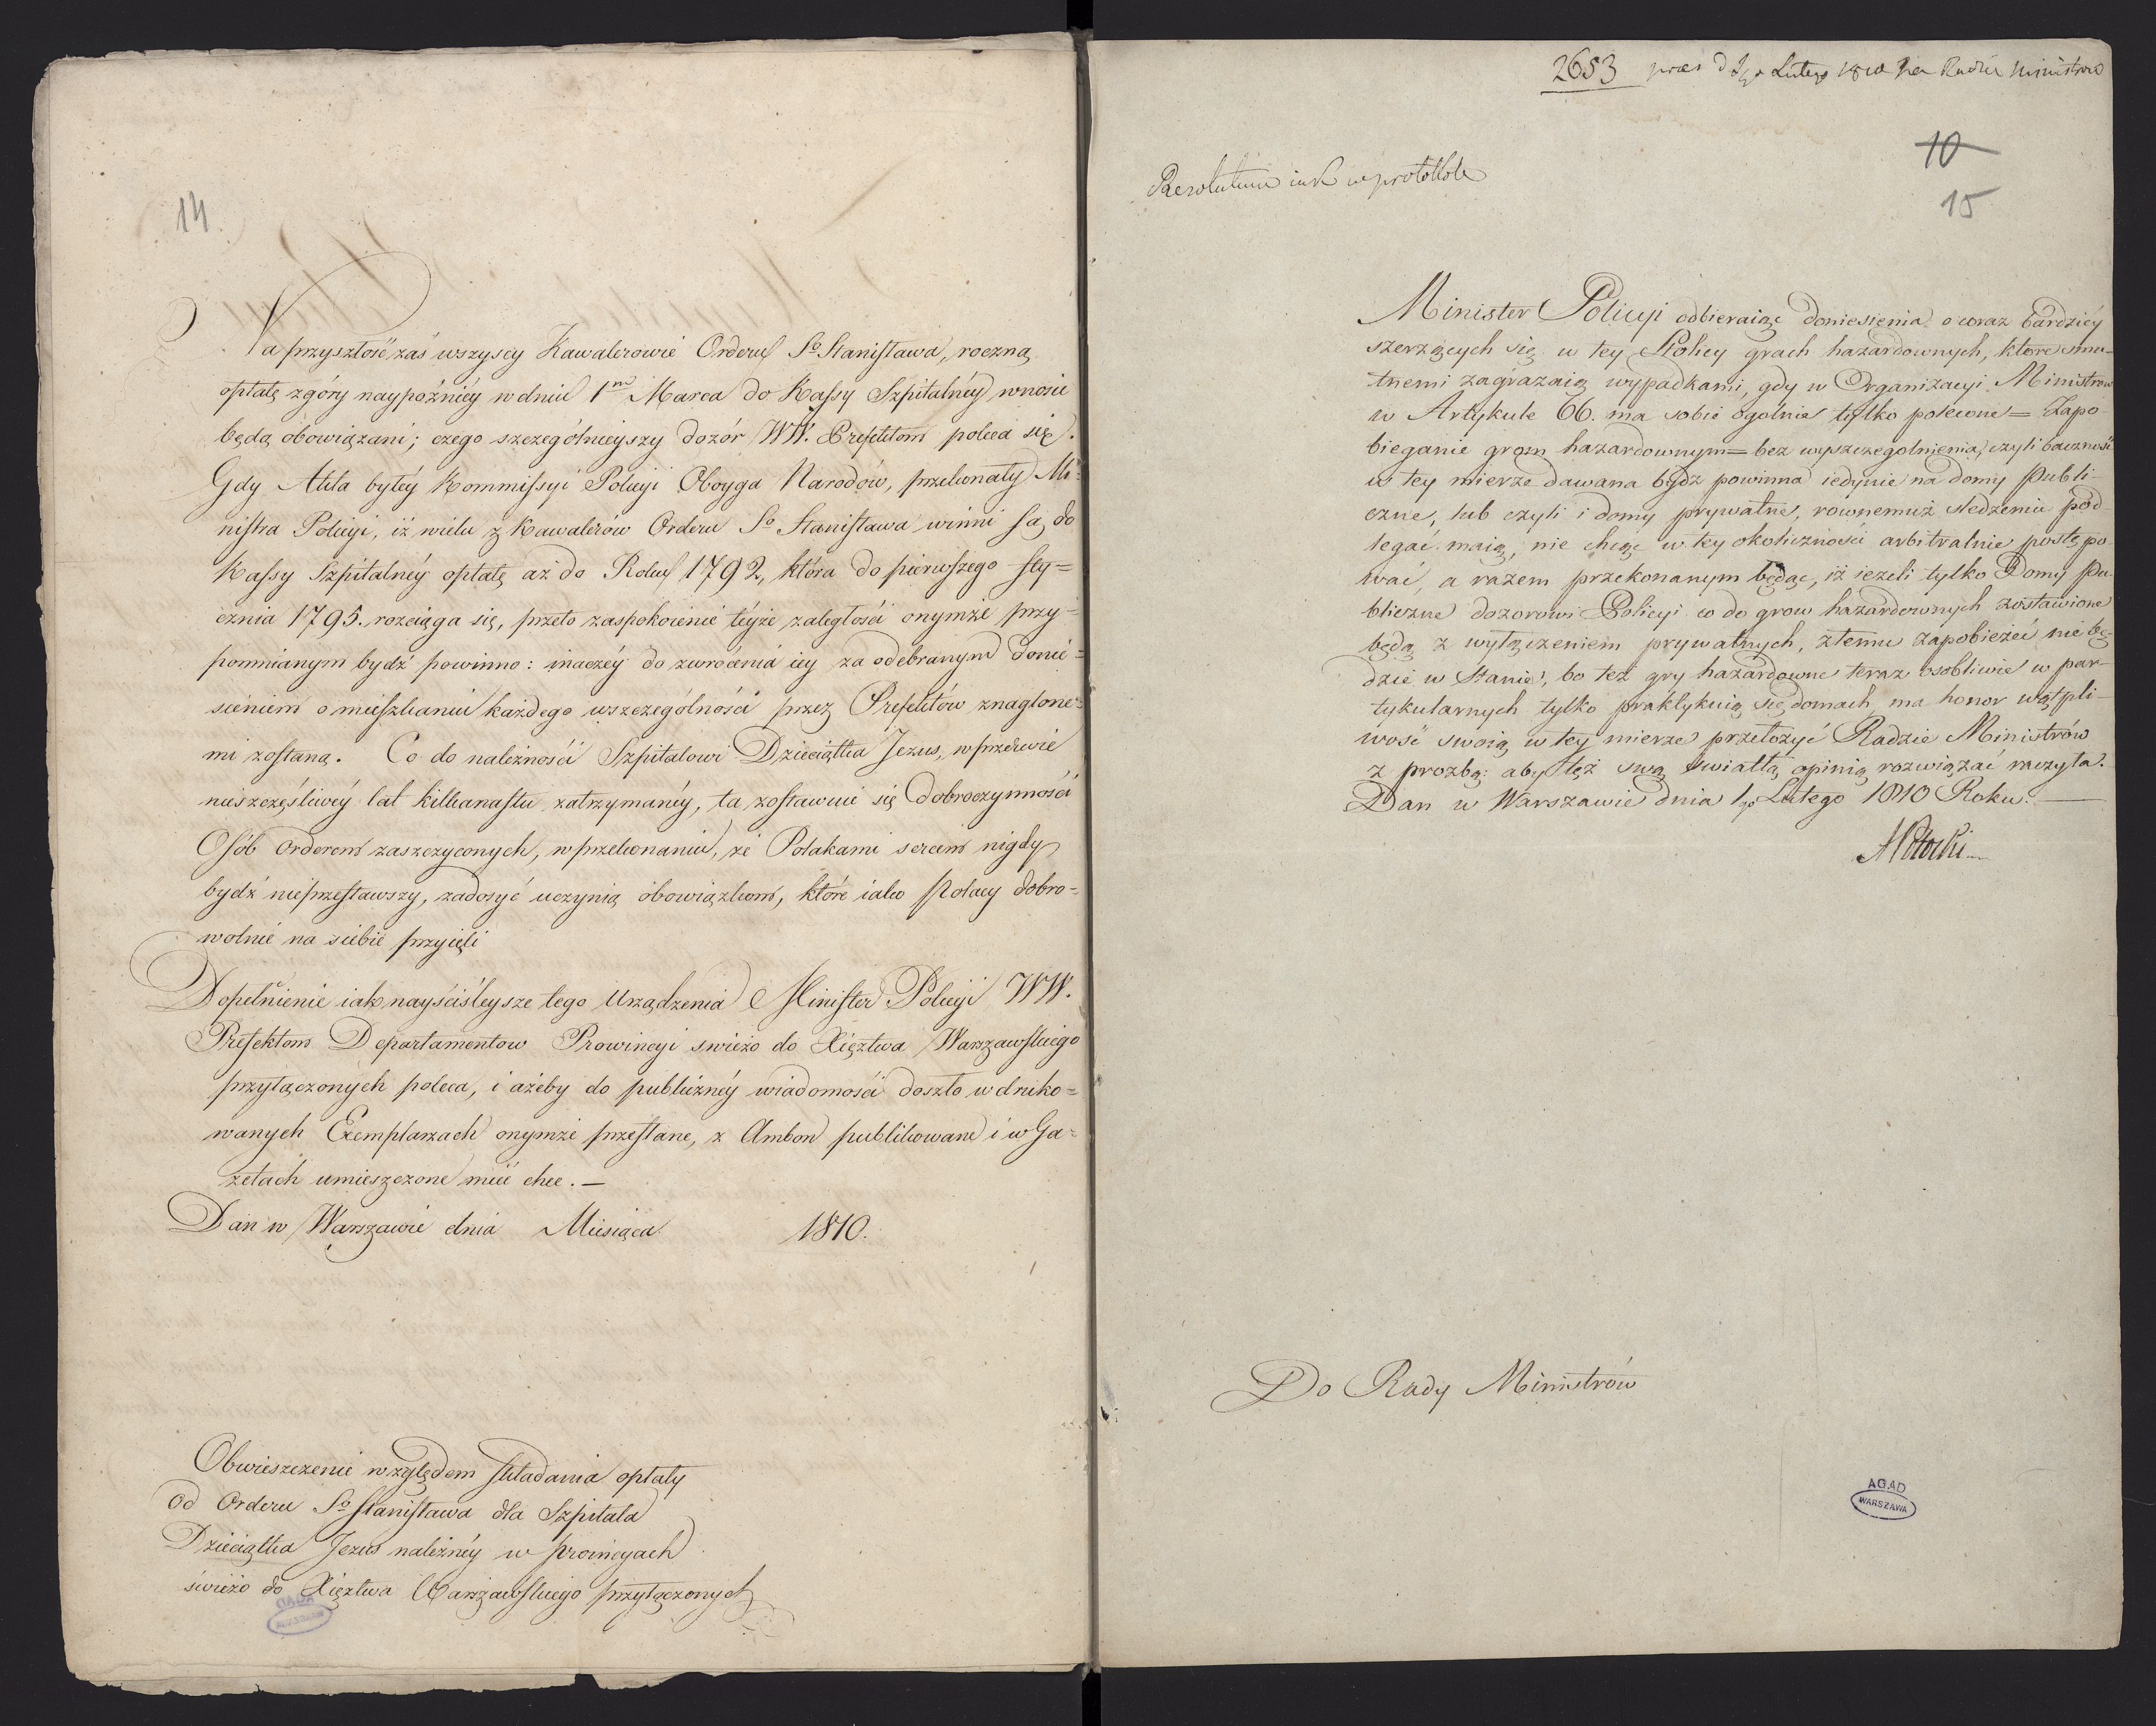 14
Na przyszłość zaś wszyscy Kawalerowie Orderu Sº Stanisława, roczną
opłatę z góry naypóźniéy w dniu 1ᵐ Marca do Kassy Szpitalnéy wnosić
będą obowiązani; czego szczególnieyszy dozór WW. Prefektom poleca się.
Gdy Akta byłéy Kommissyi Policyi Oboyga Narodów, przekonały Mi=
nistra Policyi, iż wielu z Kawalerów Orderu Sº Stanisława winni są do
Kassy Szpitalnéy opłatę aż do Roku 1792, która do pierwszego sty=
cznia 1795. rozciąga się, przeto zaspokoienie téyże zaległości onymże przy=
pomnianym bydź powinno: inaczéy do zwrócenia iey za odebranym donie=
sieniem o mieszkaniu każdego wszczególności przez Prefektów znaglone=
mi zostaną. Co do należności Szpitalowi Dzieciątka Jezus, w przeciągu
nieszczęśliwéy lat kilkanastu zatrzymanéy, ta zostawuie się Dobroczynności
Osób Orderem zaszczyconych, w przekonaniu, że Polakami sercem nigdy
bydź nieprzestawszy, zadosyć uczynią obowiązkom, które iako Polacy dobro=
wolnie na siebie przyięli
Dopełnienie iak nayściśleysze tego Urządzenia Minister Policyi WW.
Prefektom Departamentow Prowincyi swieżo do Xięztwa Warszawskiego
przyłączonych poleca, i ażeby do publicznéy wiadomości doszło w druko=
wanych Exemplarzach onymże przesłane, z Ambon publikowane i w Ga=
zetach umieszczone mieć chce. —
Dan w Warszawie dnia Miesiąca 1810.
Obwieszczenie względem składania opłaty
od Orderu Sº Stanisława dla Szpitala
Dzieciątka Jezus należnéy w prowincyach
świéżo do Xięztwa Warszawskiego przyłączonych
2653 praes d 1go Lutego 1810 na Radzie Ministrow
10
15
Resolutum iak w protokole
Minister Policyi odbieraiąc doniesienia o coraz bardziéy
szerzących się w tey Stolicy grach hazardownych, ktore smu-
tnemi zagrażaią wypadkami, gdy w Organizacyi Ministrow
w Artykule 66. ma sobie ogolnie tylko polecone = Zapo-
bieganie grom hazardownym = bez wyszczegolnienia, czyli baczność
w tey mierze dawana bydź powinna iedynie na domy Publi-
czne, lub czyli i domy prywatne, rownemuż sledzeniu pod-
legać maią, nie chcąc w tey okoliczności arbitralnie postępo-
wać, a razem przekonanym będąc, iż ieżeli tylko Domy Pu-
bliczne dozorowi Policyi co do grow hazardownych zostawione
będą z wyłączeniem prywatnych, złemu zapobieżeć nie bę-
dzie w Stanie, bo też gry hazardowne teraz osobliwie w par-
tykularnych tylko praktykuią się domach, ma honor wątpli-
wość swoią w tey mierze przełożyć Radzie Ministrów
z prozbą: aby też swą światłą opinią rozwiązać raczyła.
Dan w Warszawie dnia 1go Lutego 1810 Roku. —
APotocki
Do Rady Ministrów
AGAD
WARSZAWA